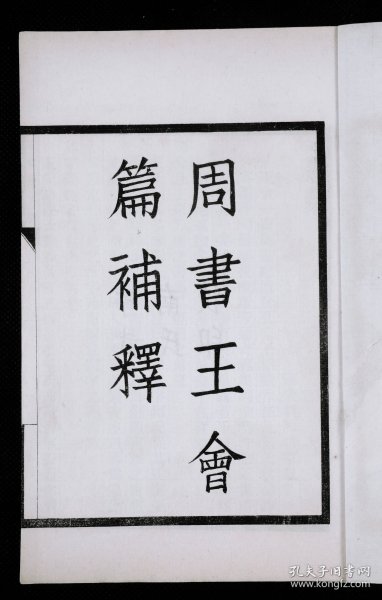 周書王會
篇補釋
孔夫子旧书网
www.kongfz.com